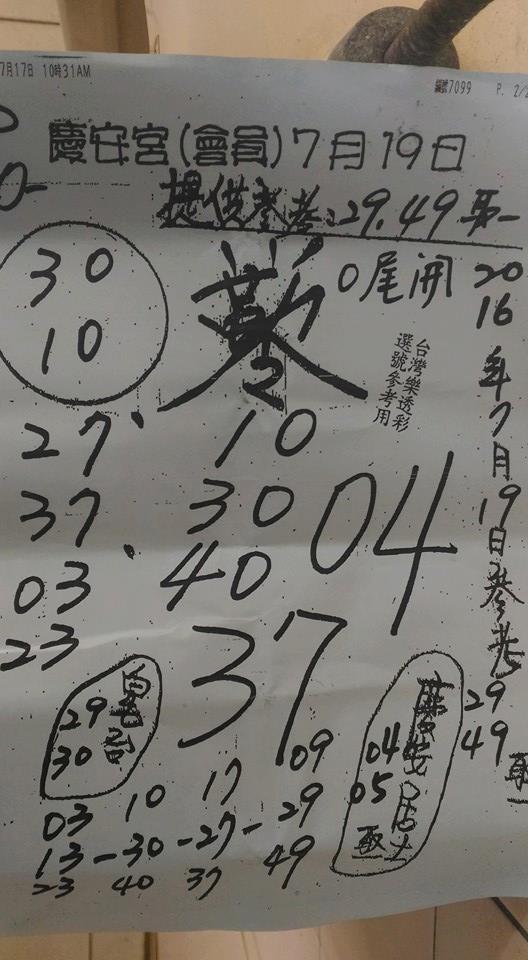 7月17日 10時31AM
7099 P. 2/2
慶安宮(會員)7月19日
提供參考:29.49 取一
0尾開
2016年7月19日參考
30
10
台灣樂透彩
選號參考用
27
37
03
23
10
30
40
04
37
29
49
取一
29
30
慶安居士
04
05
取一
03 10 17 09
13-30-27-29
23 40 37 49